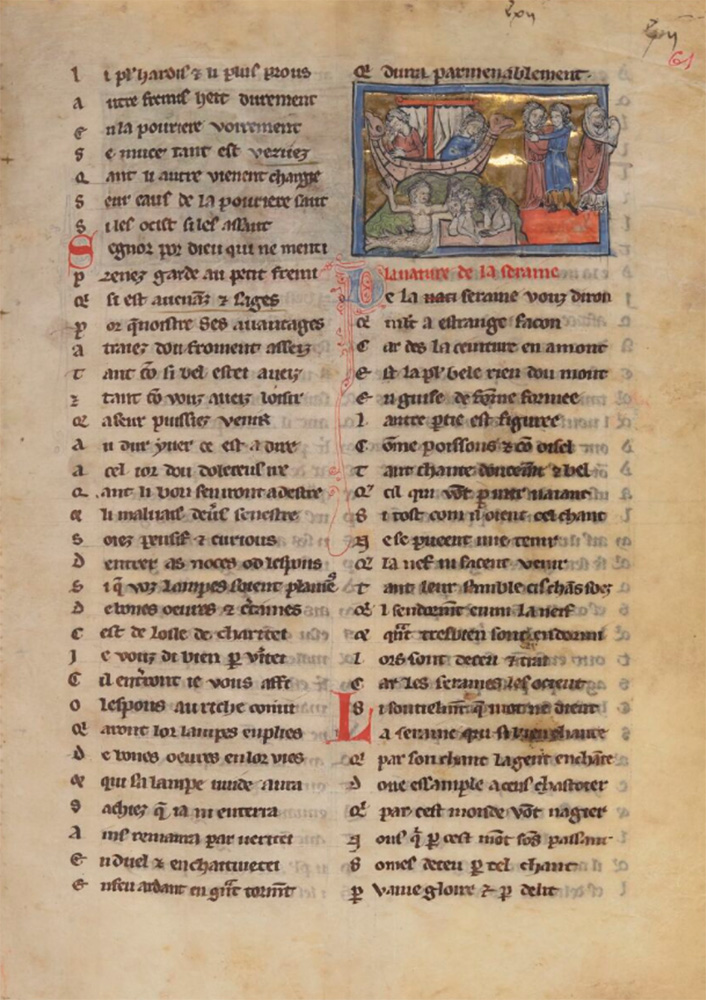 61
L i pl' hardis ⁊ li plus prous
A utre fremis heit durement
E n la pourriere voirement
S e muce tant est veziez
Q ant li autre vienent chargie
S eur eaus de la pourriere saut
S i les ocist si les assaut
Segnor por dieu qui ne menti
P renez garde au petit fremi
Q si est
P or q̄noistre ses auantages
A traiez dou froment assez
T ant cō si bel estei auez
⁊ tant cō vouz auez loisir
Q a seur puissiez venir
A u dur yuer ce est a dire
A cel ior dou
Q ant li bon seu iront a destre
E li maluais deu's senestre
S oiez pensif ⁊ curious
D entrer as noces od lespous
S i q̄ voz lampes soient plaines
D e bones oeures ⁊ certaines
C est de loile de charitei
J e vouz di bien p̄ v'itei
C il entrōt ie vous affi
O lespous au riche conui
Q auront lor lampes enplies
D e bones oeures en lor vies
E qui sa lampe uuide aura
S achiez q̄ ia ni enterra
A ins remaura par veritei
E n duel ⁊ en chaitiuetei
E n feu ardant en gnt torm̄t
Q dura parmenablement
De la nature de la seraine
De la seraine vouz diron
Q mlt a estrange facon
C ar des la ceinture en amont
E st la pl' bele rien dou mont
E n guise de feme formee
L autre p̄tie est figuree
C ōme poissons ⁊ cō oisel
T ant chante doucem̄t ⁊ bel
Q cil qui vōt p̄ mer naiant
S i tost com il oient cel chant
N e se pueent mie tenir
Q la nef ni facent venir
T ant leur semble cis chās soez
Q l sendorm̄t enmi la neif
E qn̄t tresbien sont endormi
L ors sont deceu ⁊ trai
C ar les seraines les ocient
S i soutielm̄t q̄ mot ne dient
La seraine qui si bien chante
Q par son chant la gent enchāte
D one essample a ceus chastoier
Q par cest monde vōt nagier
N ous q̄ p̄ cest mōt sōs passant
S omes deceu p̄ tel chant
P vaine gloire ⁊ p̄ delit